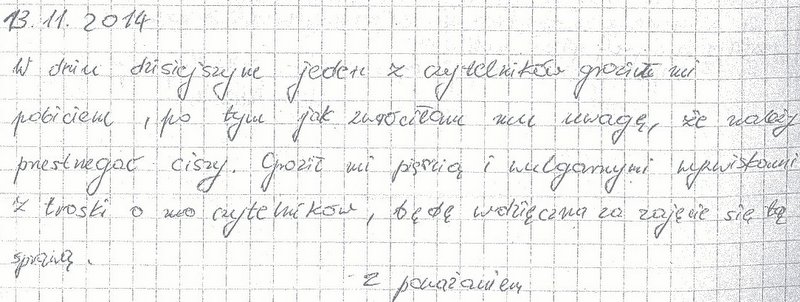 13.11.2014
W dniu dzisiejszym jeden z czytelników groził mi
pobiciem, po tym jak zwróciłam mu uwagę, że należy
przestrzegać ciszy. Groził mi pięścią i wulgarnymi wyzwiskami
z troski o czytelników, będę wdzięczna za zajęcie się tą
sprawą.
z poważaniem